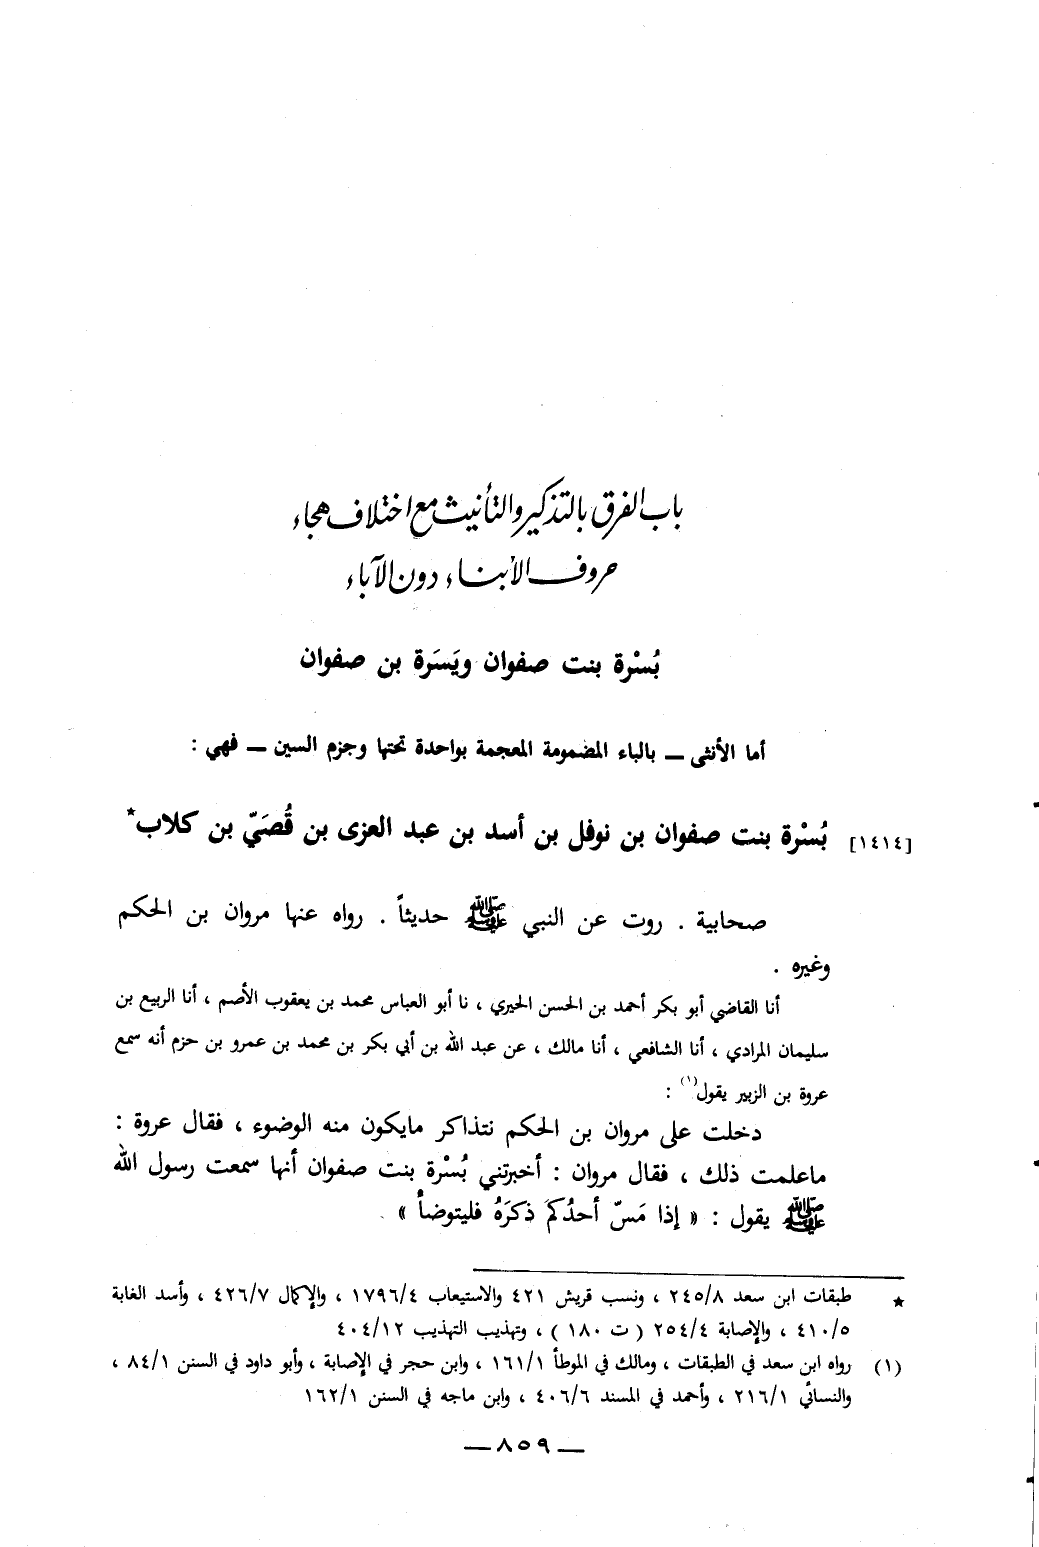 باب الفرق بالتذكير والتأنيث مع اختلاف هجاء
حروف الأبناء دون الآباء
بُسْرة بنت صفوان ويَسَرة بن صفوان
أما الأنثى ــ بالباء المضمومة المعجمة بواحدة تحتها وجزم السين ــ فهي :
[١٤١٤] بُسْرة بنت صفوان بن نوفل بن أسد بن عبد العزى بن قُصَيّ بن كلاب*
صحابية . روت عن النبي ﷺ حديثاً . رواه عنها مروان بن الحكم
وغيره .
أنا القاضي أبو بكر أحمد بن الحسن الحيري ، نا أبو العباس محمد بن يعقوب الأصم ، أنا الربيع بن
سليمان المرادي ، أنا الشافعي ، أنا مالك ، عن عبد الله بن أبي بكر بن محمد بن عمرو بن حزم أنه سمع
عروة بن الزبير يقول(١) :
دخلت على مروان بن الحكم نتذاكر مايكون منه الوضوء ، فقال عروة :
ماعلمت ذلك ، فقال مروان : أخبرتني بُسْرة بنت صفوان أنها سمعت رسول الله
ﷺ يقول : « إذا مَسّ أحدُكم ذكرَهُ فليتوضأْ » .
★ طبقات ابن سعد ٢٤٥/٨ ، ونسب قريش ٤٢١ والاستيعاب ١٧٩٦/٤ ، والإكمال ٤٢٦/٧ ، وأسد الغابة
٤١٠/٥ ، والإصابة ٢٥٤/٤ ( ت ١٨٠ ) ، وتهذيب التهذيب ٤٠٤/١٢
(١) رواه ابن سعد في الطبقات ، ومالك في الموطأ ١٦١/١ ، وابن حجر في الإصابة ، وأبو داود في السنن ٨٤/١ ،
والنسائي ٢١٦/١ ، وأحمد في المسند ٤٠٦/٦ ، وابن ماجه في السنن ١٦٢/١
— ٨٥٩ —